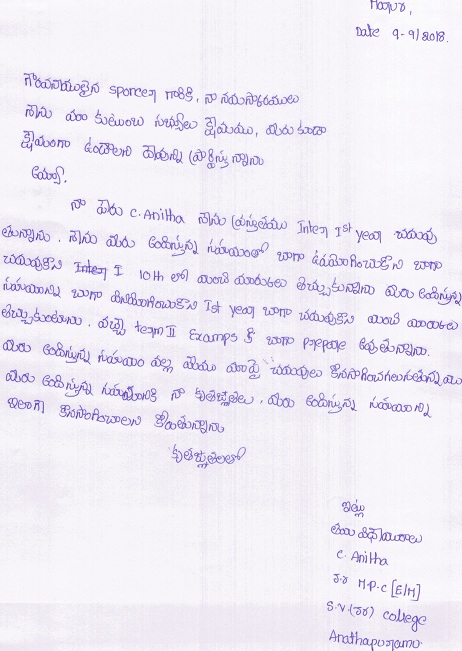 Hapur,
Date 9-9/2018.
గౌరవనీయులైన sponcer గారికి, నా నమస్కారములు
నేను మా కుటుంబ సభ్యులు క్షేమము, మీరు కూడా
క్షేమంగా ఉండాలని దేవున్ని ప్రార్థిస్తున్నాను
నా పేరు C.Anitha నేను ప్రస్తుతము Inter Ist year చదువు
తున్నాను. నేను మీరు అందిస్తున్న సహాయంతో బాగా ఉపయోగించుకొని బాగా
చదువుకొని Inter I 10th లో మంచి మార్కులు తెచ్చుకున్నాను మీరు అందిస్తున్న
సహాయాన్ని బాగా వినియోగించుకొని Ist year బాగా చదువుకొని మంచి మార్కులు
తెచ్చుకుంటాను. వచ్చే team II Examps కి బాగా prepare అవుతున్నాను.
మీరు అందిస్తున్న సహాయం వల్ల మేము మా పై చదువులు కొనసాగించగలుగుతున్నాము
మీరు అందిస్తున్న సహాయానికి నా కృతజ్ఞతలు, మీరు అందిస్తున్న సహాయాన్ని
ఇలాగే కొనసాగించాలని కోరుతున్నాను
కృతజ్ఞతలతో
ఇట్లు
తమ విధేయురాలు
C. Anitha
జూ.ర M.P.C [E/M]
S.V.(జూర) college
Anathapuramu